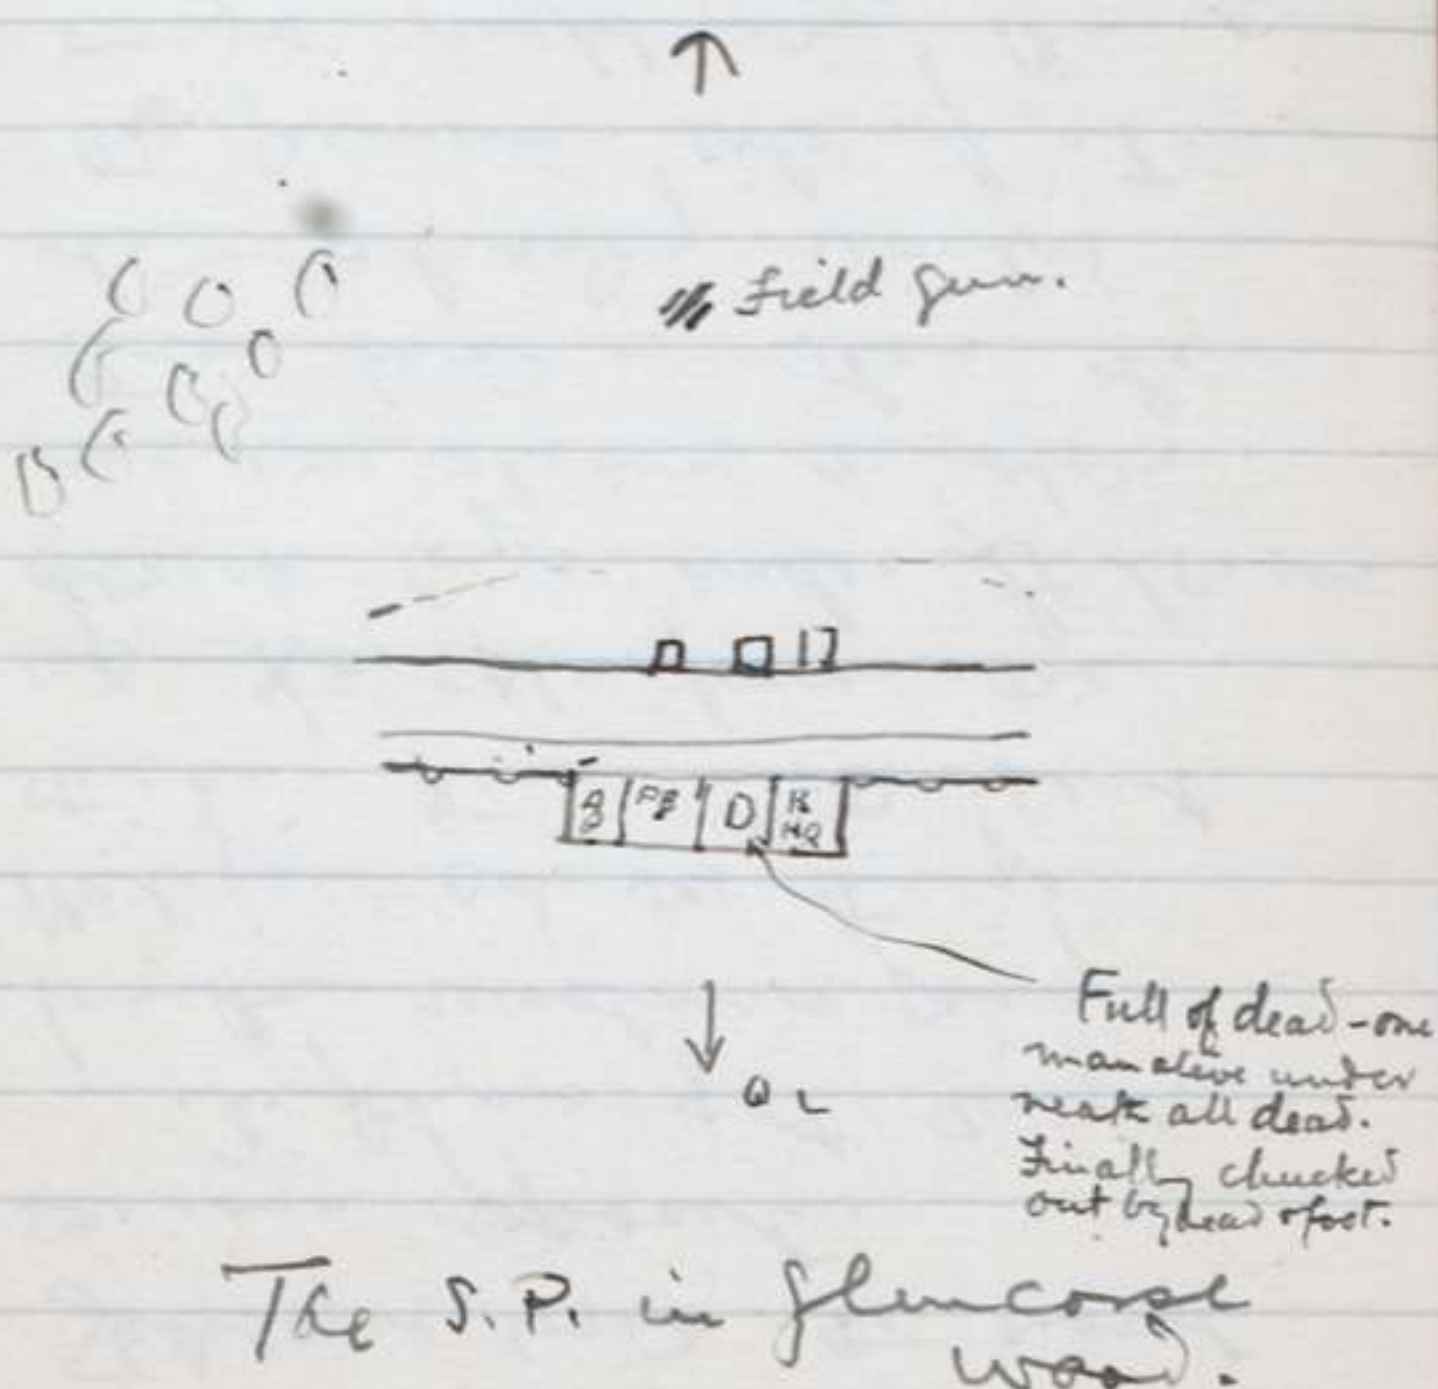 Field gun.
D
HQ
Full of dead - one
man alive under
neath all dead.
Finally chucked
out by head & foot.
The S.P. in Glencorse
wood.